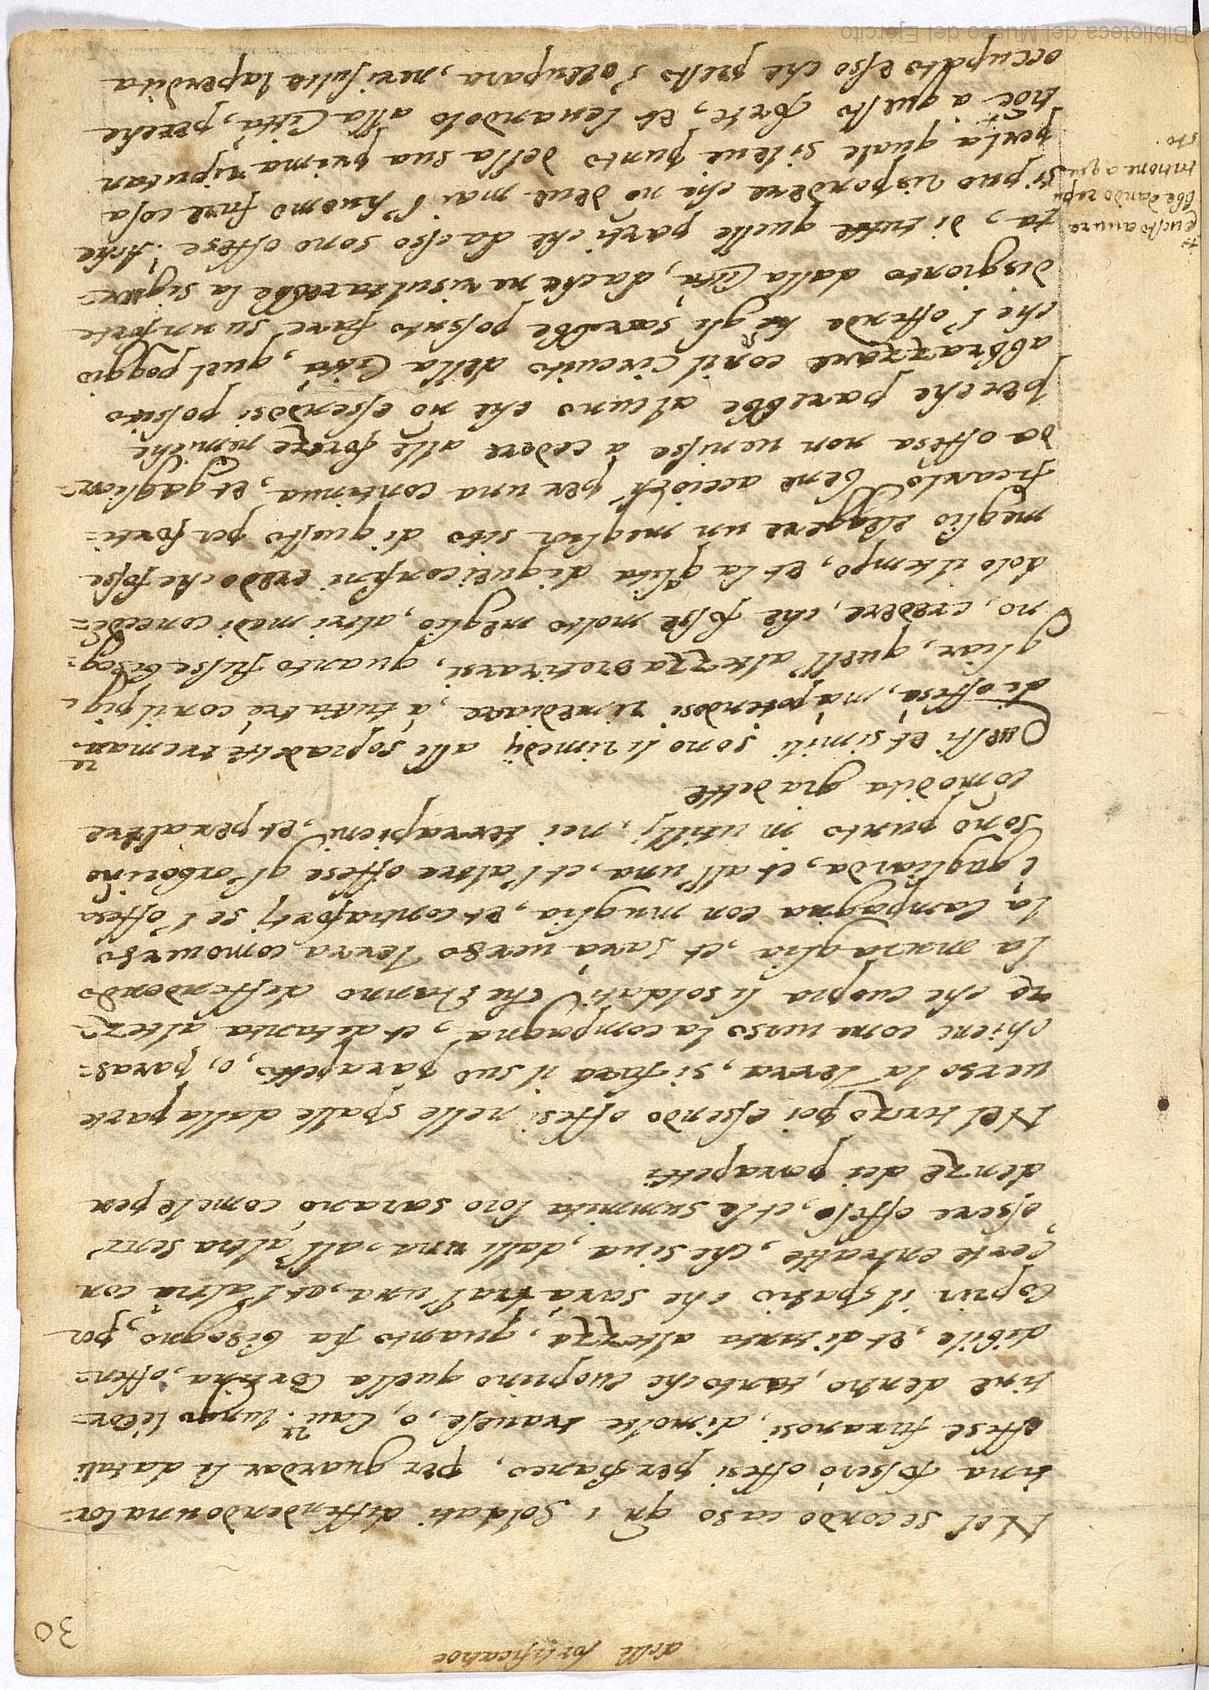 delle fortificatioē
30
Nel secondo caso qñ i soldati diffendendo una cor-
tina fossero offesi per fianco, per guardar li da tali
offese faranosi, di molte trauerse, o, Cau.ri lungo li cor-
tine dentro, tanto che cuoprino quella cortina, offen-
dibile, et di tanta altezza, quanto fia bisogno, pa
coprir il spatio che sarà tra l'una, et l'altra con
certe entratte, che si ua, dall una, all altra senz
essere offesi, et le summita loro sarano come le pen
denze dei parapetti
Nel terzo poi essendo offesi nelle spalle dalla parte
uerso la Terra, si fara il suo parapetto, o, paras-
chiene come uerso la campagna, et de tanta altez-
ze che cuopra li soldati che stanno diffendendo
la muraglia, et sara uerso Terra como uerso
la campagna con muraglia, et contraforti se l'offesa
è gagliarda, et all una, et l'altre offese gl'arbori no
sono punto inutilli, nei terrapieni, et per altre
comodita gia dette
Questi et simili sono li rimedij alle sopradette tre manre
di offesa, ma potendosi rimediare, à tutta tre con il pig-
gliar, quell' altezza o retirarsi, quanto fusse bisog-
no, credere, che fosse molto meglio, altri medi conceden-
dolo il tempo, et la qlita di quei confini credo che fosse
meglio ellegere un miglior sito di questo per forti-
ficarlo bene accioch' per una continua, et gagliar-
da offesa non uenisse à cedere alle forze nemiche
perche parebbe alcuno che no essendosi possuto
abbrazzare con il circuito della Città, quel poggio
che l'offende ne gli sarebbe possuto fare su un forte
disgionto dalla Città, da che ne risultarebbe la sigur-
ta, di tutte quelle parti che da esso sono offese. Anche
si puo rispondere che no deue mai l'huomo fare cosa
per la quale si leue punto della sua prima riputan
tioe a questo forte, et leuandolo alla Città, perche
occupato esso che presto s'occupara, ne risulta la perdita
et questo auuere
bbe dando repu
tatione a que
sto.
Biblioteca del Museo del Ejército